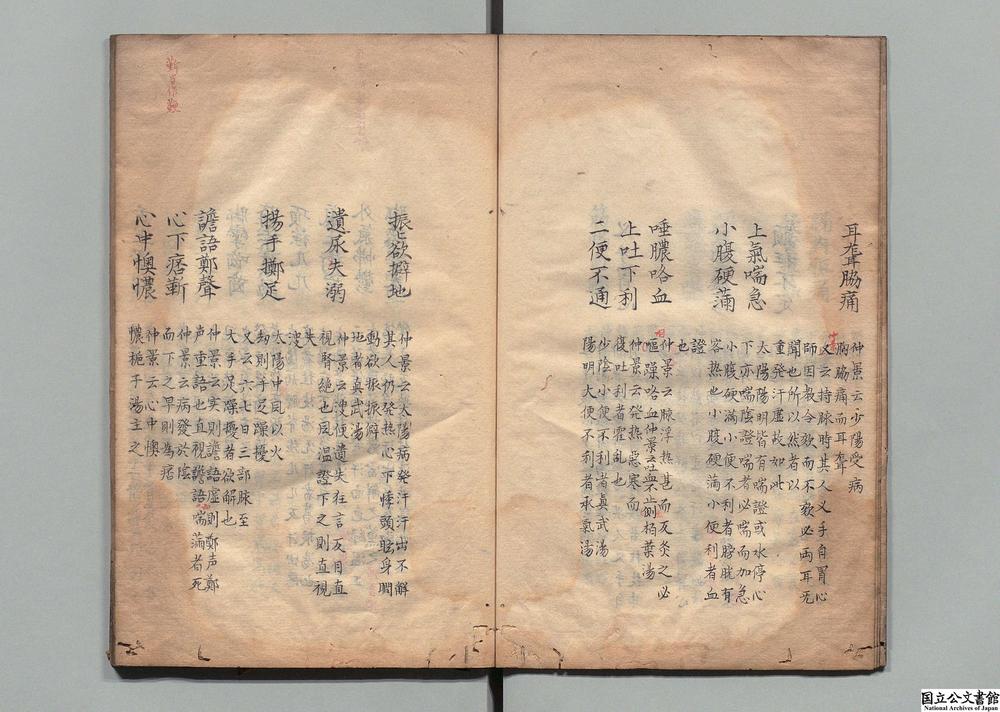 耳聾脇痛
仲景云少陽受病
胸脇痛而耳聾
又云持脉時其人叉手自冒心
師因教令欬而不欬必両耳无
聞也所以然者以
重發汗虚故如此
上氣喘急
太陽陽明皆有喘證或水停心
下亦喘陰證喘者必喘而加急
小腹硬満
小腹硬満小便不利者膀胱有
客熱也小腹硬满小便利者血
證
也
唾膿咯血
仲景云脉浮熱甚而反灸之必
嘔躁咯血仲景云吐血不止側栢葉湯
止吐下利
仲景云発热惡寒而
復吐利者霍乱也
二便不通
少陰小便不利者眞武湯
陽明大便不利者承氣湯
振欲擗地
仲景云太陽病発汗汗出不觧
其人仍發热心下悸頭眩身瞤
動欲振振擗
地者真武湯
遺尿失溺
仲景云溲便遺失狂言反目直
視腎絶也風温證下之則直視
失
溲
揚手擲足
太陽中風以火
劫則手足躁擾
又云六七日三部脉至
大手足躁擾者欲解也
譫語鄭聲
仲景云实則譫語虚則鄭声鄭
声重語也直視譫語喘满者死
心下痞
仲景云病發於陰
而下之早則為痞
心中懊憹
仲景云心中懊
憹梔子湯主之
国立公文書館
National Archives of Japan